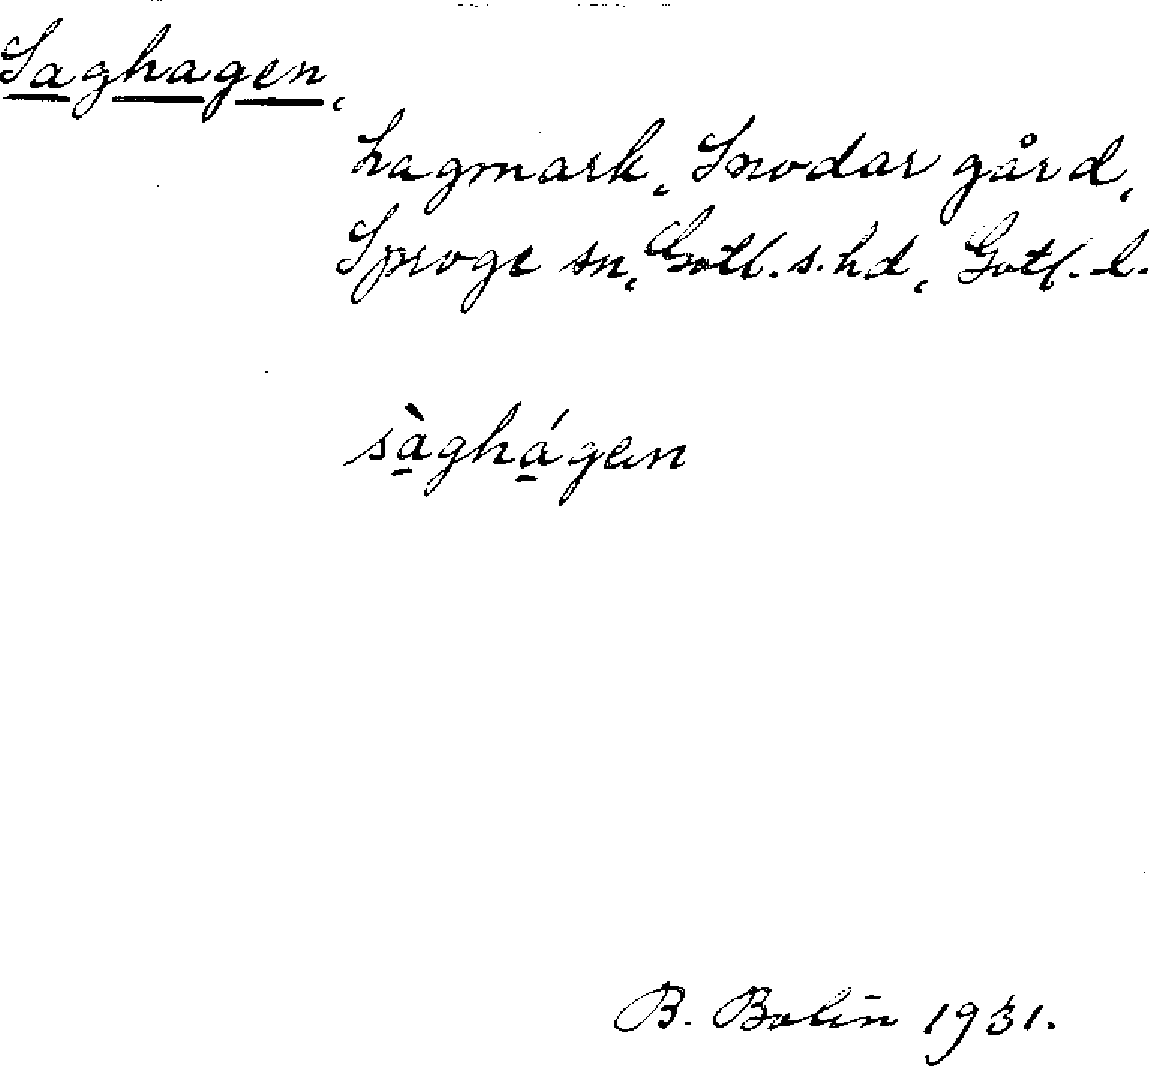 Saghagen,
hagmark, Snodar gård,
Sproge sn, Gotl. s. hd, Gotl. l.
sà̱ghá̱gen
B. Bolin 1931.